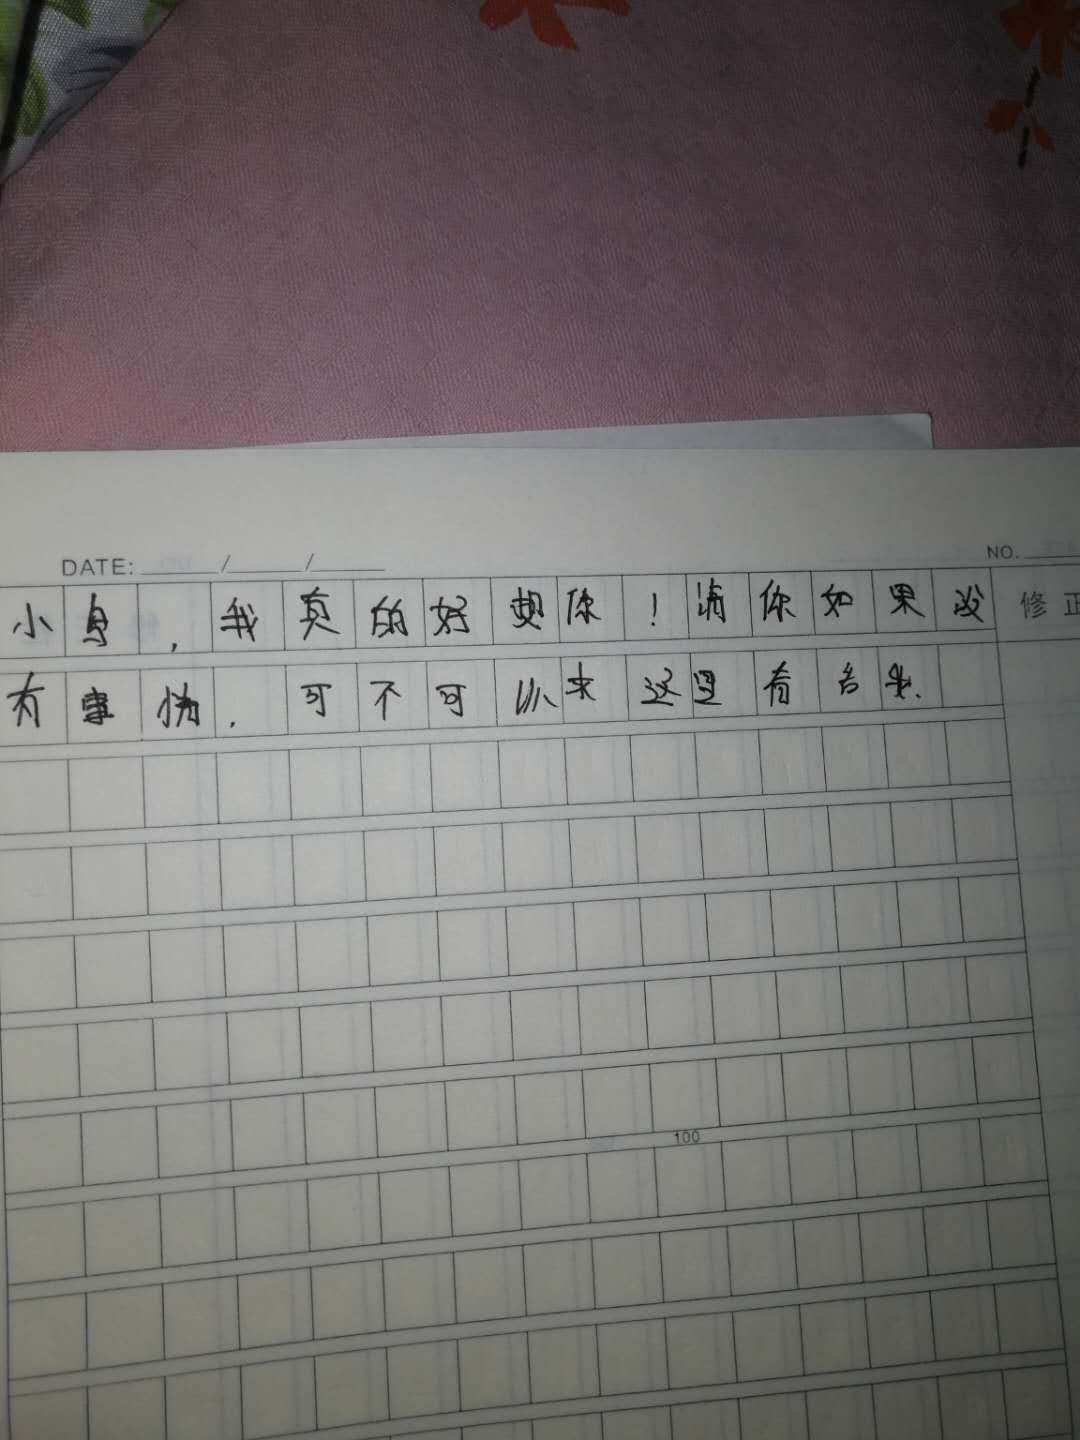 DATE: / /
NO.
小身，我真的好想你！请你如果没 修正
有事情，可不可以来这里看看我.
100